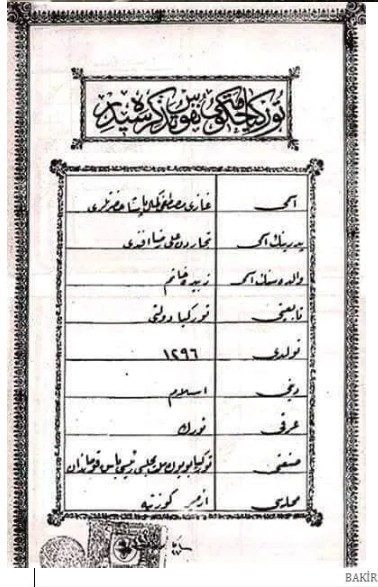 توركيا حكومتى نفوس تذكره سيدر
اسمى غازى مصطفى كمال پاشا حضرتلرى
پدرينك اسمى تجاردن على رضا افندى
والده سنك اسمى زبيده خانم
تابعيتى توركيا دولتى
تولدى ١٢٩٦
دينى اسلام
عرقى تورك
صنعتى توركيا بويوك ملت مجلسى رئيسى باش قوماندان
محلهسى ازمير
BAKİR